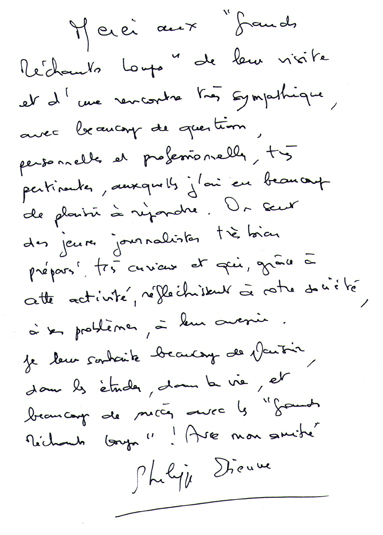 Merci aux "Grands
Méchants Loups" de leur visite
et d'une rencontre très sympathique,
avec beaucoup de question,
personnelles et professionnelles, très
pertinentes, auxquelles j'ai eu beaucoup
de plaisir à répondre. On sent
des jeunes journalistes très bien
préparés, très curieux et qui, grâce à
cette activité, réfléchissent à notre société,
à ses problèmes, à leur avenir.
Je leur souhaite beaucoup de plaisir,
dans les études, dans la vie, et
beaucoup de succès avec les "Grands
Méchants Loups" ! Avec mon amitié
Philippe Etienne